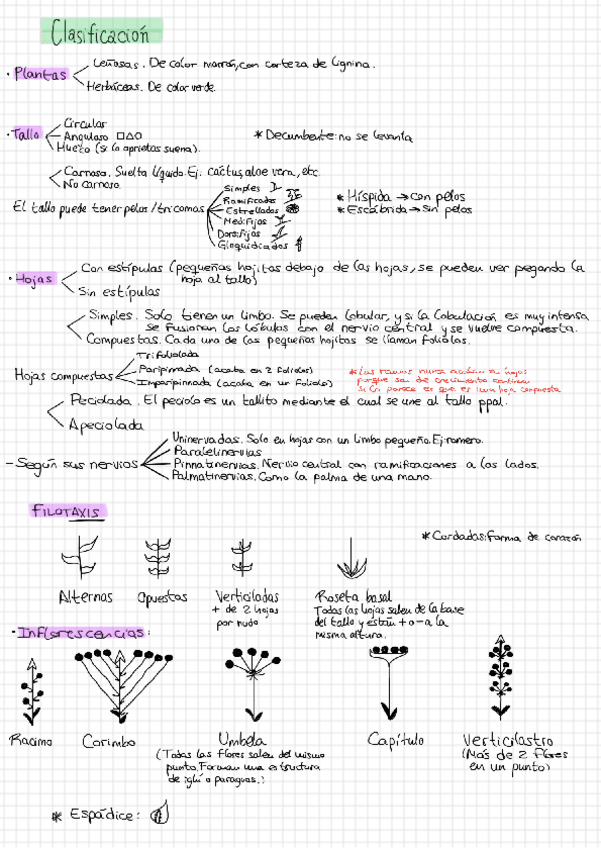 Clasificación
· Plantas
Leñosas. De color marrón, con corteza de lignina.
Herbáceas. De color verde.
· Tallo
Circular
Anguloso
Hueco (si lo aprietas suena).
* Decumbente: no se levanta
Carnosa. Suelta líquido. Ej. cactus, aloe vera, etc.
No carnosa
El tallo puede tener pelos/tricomas
Simples
Ramificados
Estrellados
Medifijos
Dorsifijos
Gloquidiados
* Híspida → con pelos
* Escábrida → sin pelos
· Hojas
Con estípulas (pequeñas hojitas debajo de las hojas, se pueden ver pegando la
hoja al tallo)
Sin estípulas
Simples. Solo tienen un limbo. Se pueden lobular, y si la lobulación es muy intensa
se fusionan los lóbulos con el nervio central y se vuelve compuesta.
Compuestas. Cada una de las pequeñas hojitas se llaman foliolos.
Hojas compuestas
Trifoliolada
Paripinnada (acaba en 2 foliolos)
Imparipinnada (acaba en un foliolo)
* Las ramas nunca acaban en hojas
porque son de crecimiento continuo
si lo parece es que es una hoja compuesta
Peciolada. El peciolo es un tallito mediante el cual se une al tallo ppal.
Apeciolada
- Según sus nervios
Uninervadas. Solo en hojas con un limbo pequeño. Ej: romero.
Paralelinervias
Pinnatinervias. Nervio central con ramificaciones a los lados.
Palmatinervias. Como la palma de una mano.
FILOTAXIS
* Cordadas: forma de corazón
Alternas
Opuestas
Verticiladas
+ de 2 hojas
por nudo
Roseta basal
Todas las hojas salen de la base
del tallo y están + o - a la
misma altura.
· Inflorescencias:
Racimo
Corimbo
Umbela
(Todas las flores salen del mismo
punto. Forman una estructura
de iglú o paraguas.)
Capítulo
Verticilastro
(Más de 2 flores
en un punto)
* Espádice: